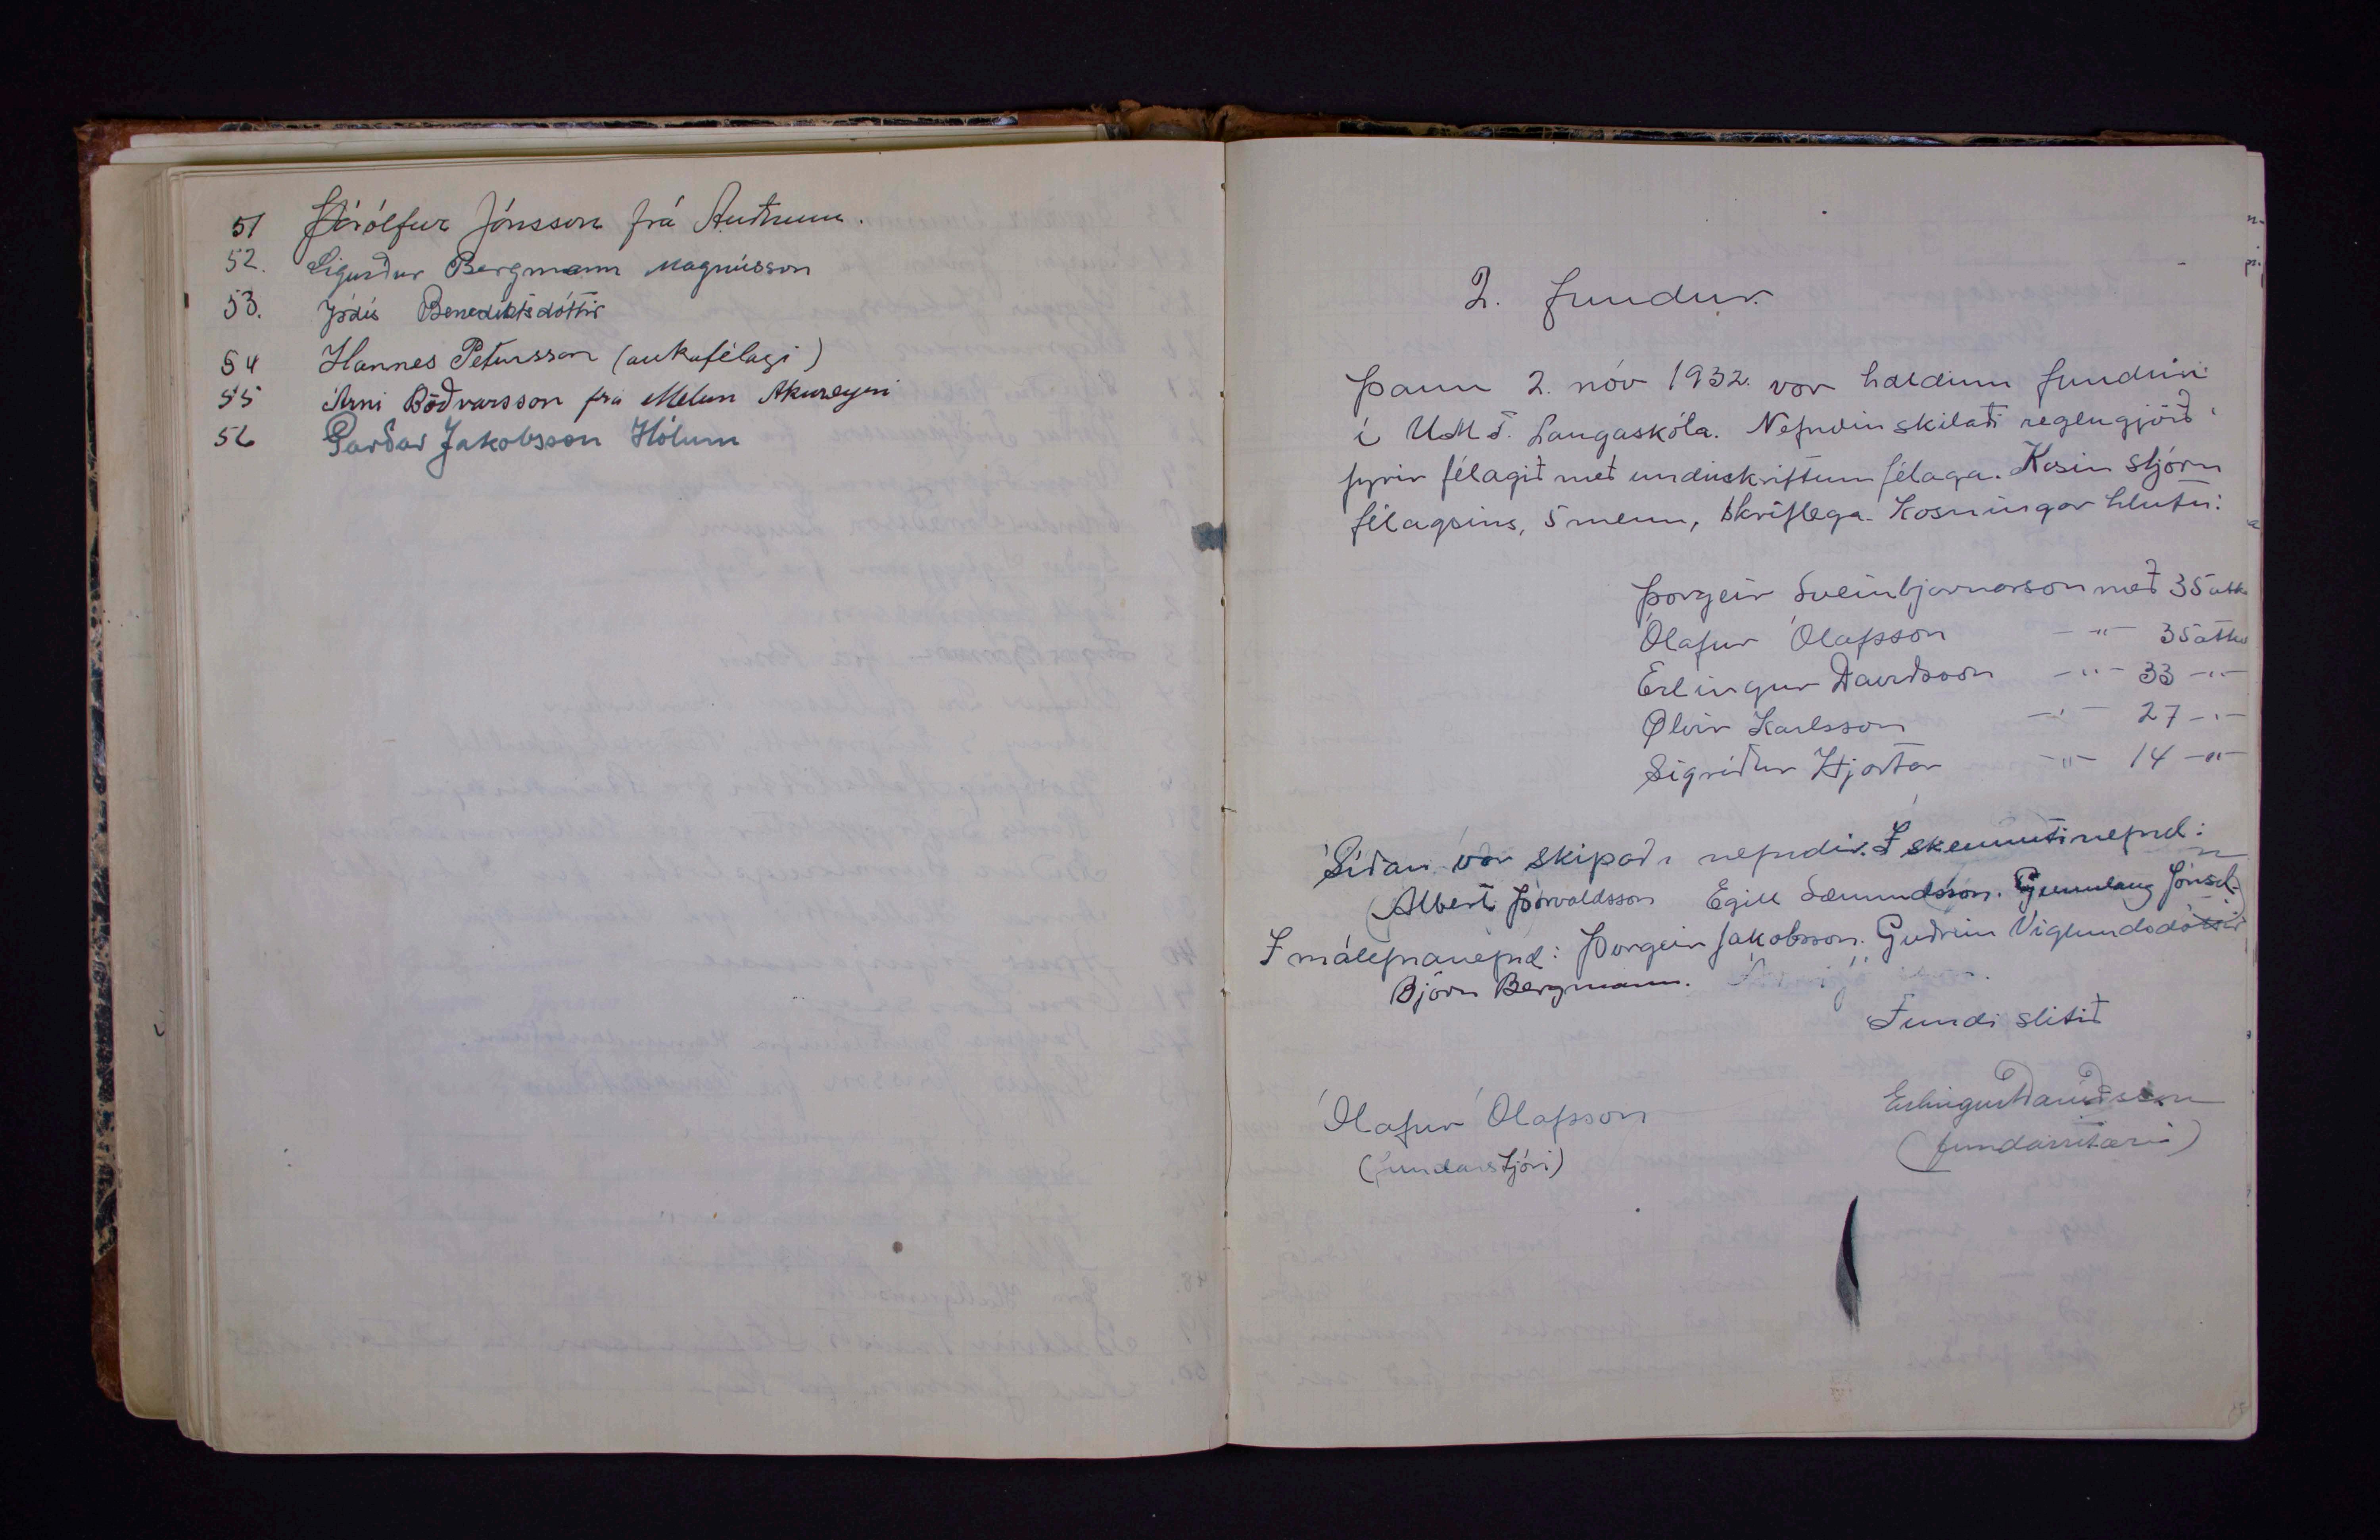 51 Þórólfur Jónsson frá Auðnum.
52. Sigurður Bergmann Magnússon
53. Jódís Benediktsdóttir
54 Hannes Pétursson (aukafélagi)
55 Árni Böðvarsson frá Melum Akureyri
56 Garðar Jakobsson Hólum
2. fundur.
Þann 2. nóv 1932. var haldinn fundur
í UMF. Laugaskóla. Nefndin skilaði reglugjörð
fyrir félagið með undirskriftum félaga. Kosin stjórn
félagsins, 5 menn, skriflega. Kosningar hlutu:
Þorgeir Sveinbjarnarson með 35 atk
Ólafur Ólafsson -"- 35 atkv
Erlingur Davíðsson -"- 33 -"-
Ølvir Karlsson -"- 27 -"-
Sigríður Hjartar -"- 14 -"-
Síðan var skipað í nefndir. Í skemmtinefnd:
(Albert Þorvaldsson Egill Sæmundsson. Gunnlaug Jónsd.)
Í málefnanefnd: Þorgeir Jakobsson. Guðrún Víglundsdóttir
Björn Bergmann.
Fundi slitið
Ólafur Ólafsson
(fundarstjóri)
Erlingur Davíðsson
(fundarritari)